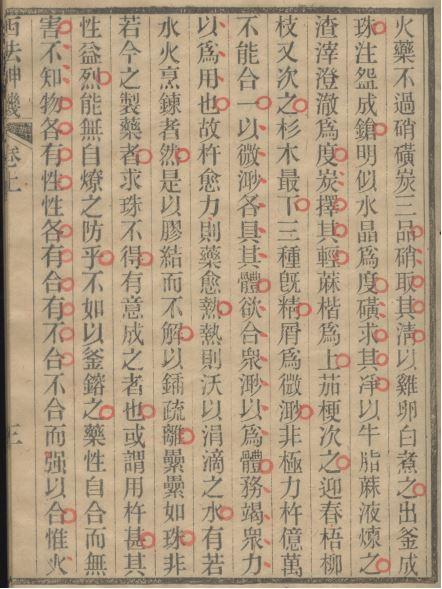 火藥不過硝磺炭三品硝取其清以雞卵白煮之出釜成
珠注盌成鎗明似水晶爲度磺求其淨以牛脂蔴液煉之
渣滓澄澈爲度炭擇其輕蔴楷爲上茄梗次之迎春梧柳
枝又次之杉木最下三種旣精屑爲微渺非極力杵億萬
不能合一以微渺各具其體欲合衆渺以爲體務竭衆力
以爲用也故杵愈力則藥愈熱熱則沃以涓滴之水有若
水火烹鍊者然是以膠結而不解以鑐疏離纍纍如珠非
若今之製藥者求珠不得有意成之者也或謂用杵甚其
性益烈能無自燎之防乎不如以釜鎔之藥性自合而無
害不知物各有性性各有合有不合不合而强以合惟火
西法神機 卷上 三